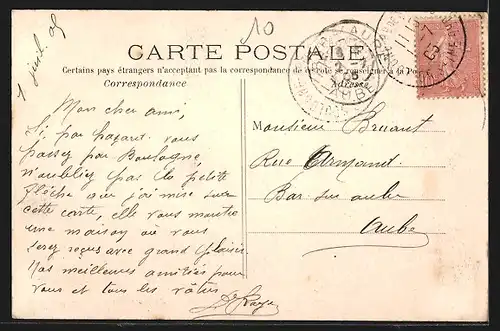 10
1 juil. 05
CARTE POSTALE
Certains pays étrangers n'acceptant pas la correspondance de ce côté se renseigner à la Poste
Correspondance
Adresse
Mon cher ami,
Si par hazard vous
passez par Boulogne,
n'oubliez pas la petite
flèche que j'ai mise sur
cette carte, elle vous montre
une maison où vous
serez reçus avec grand plaisir.
Mes meilleures amitiés pour
vous et tous les vôtres
Monsieur Bruant
Rue Armand
Bar sur aube
Aube